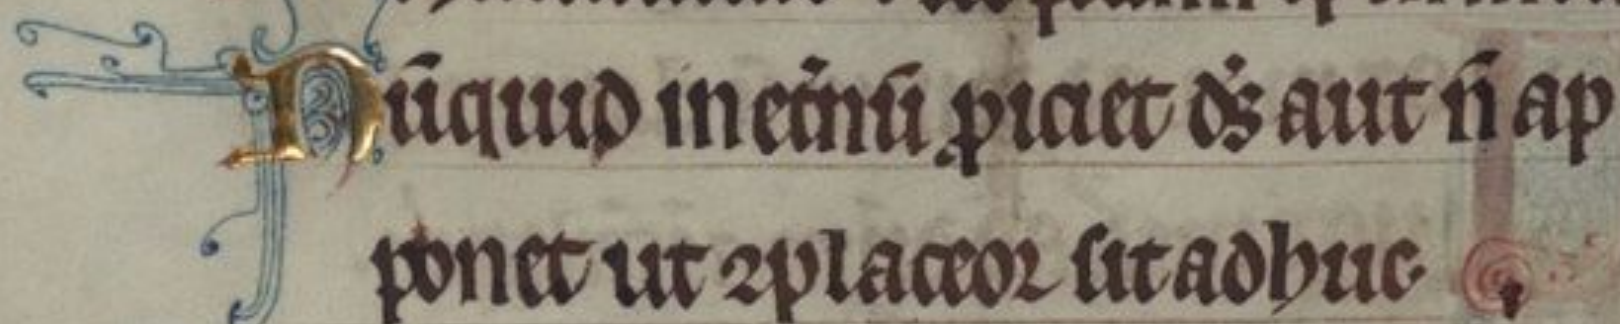 Nūquid in et̉nū ꝓiciet ds̉ aut n̄ ap
ponet ut ꝯplaceoꝛ sit adhuc